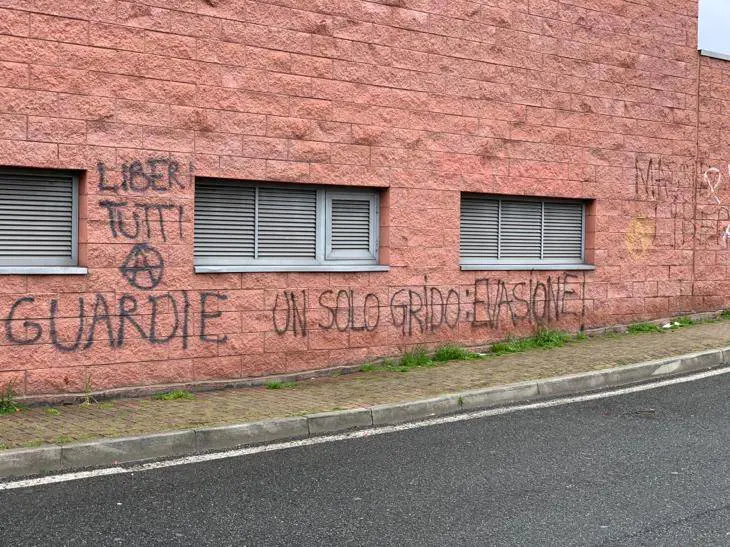 LIBERI
TUTTI
GUARDIE
UN SOLO GRIDO: EVASIONE!